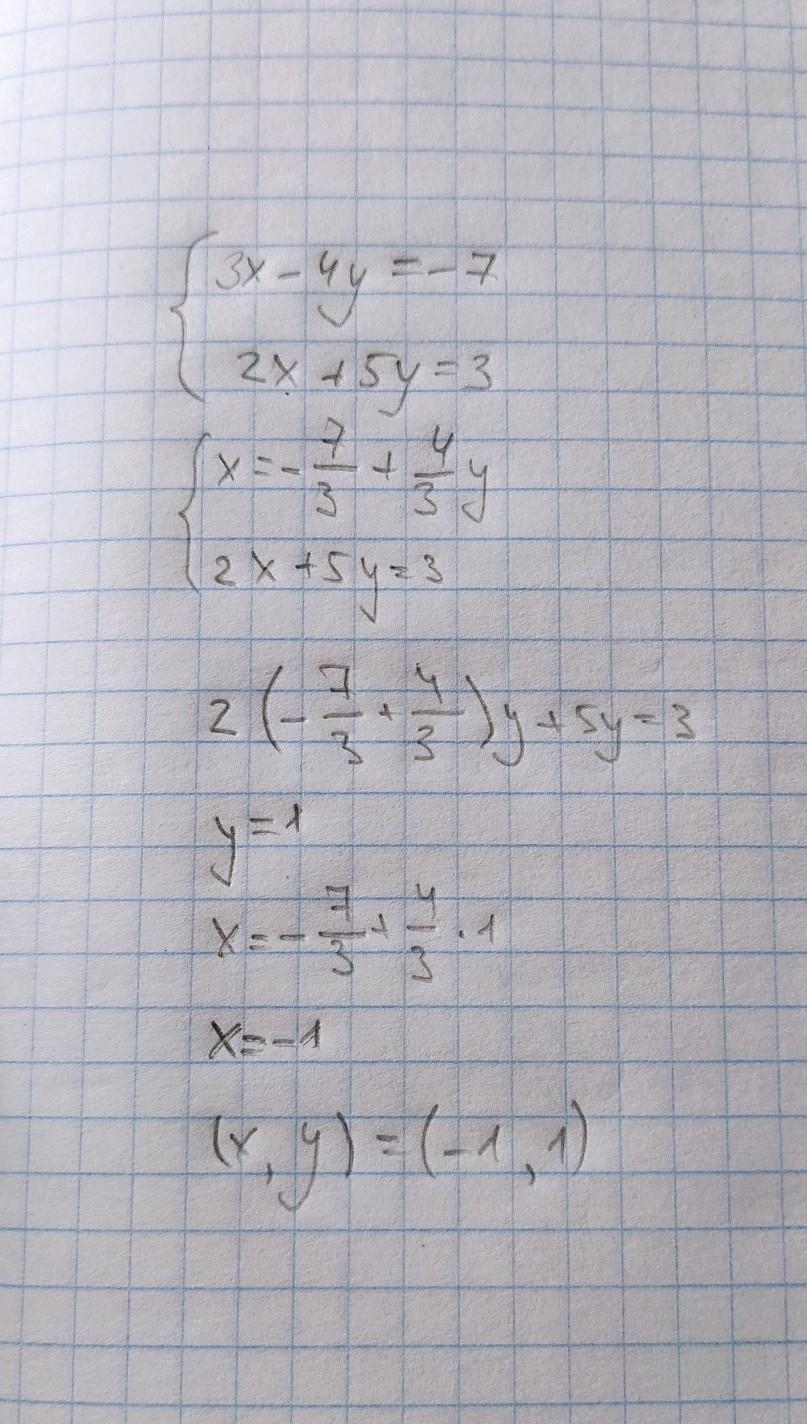 3x - 4y = -7
2x + 5y = 3
x = - 7/3 + 4/3 y
2x + 5y = 3
2 (- 7/3 + 4/3) y + 5y = 3
y = 1
x = - 7/3 + 4/3 · 1
x = -1
(x, y) = (-1, 1)